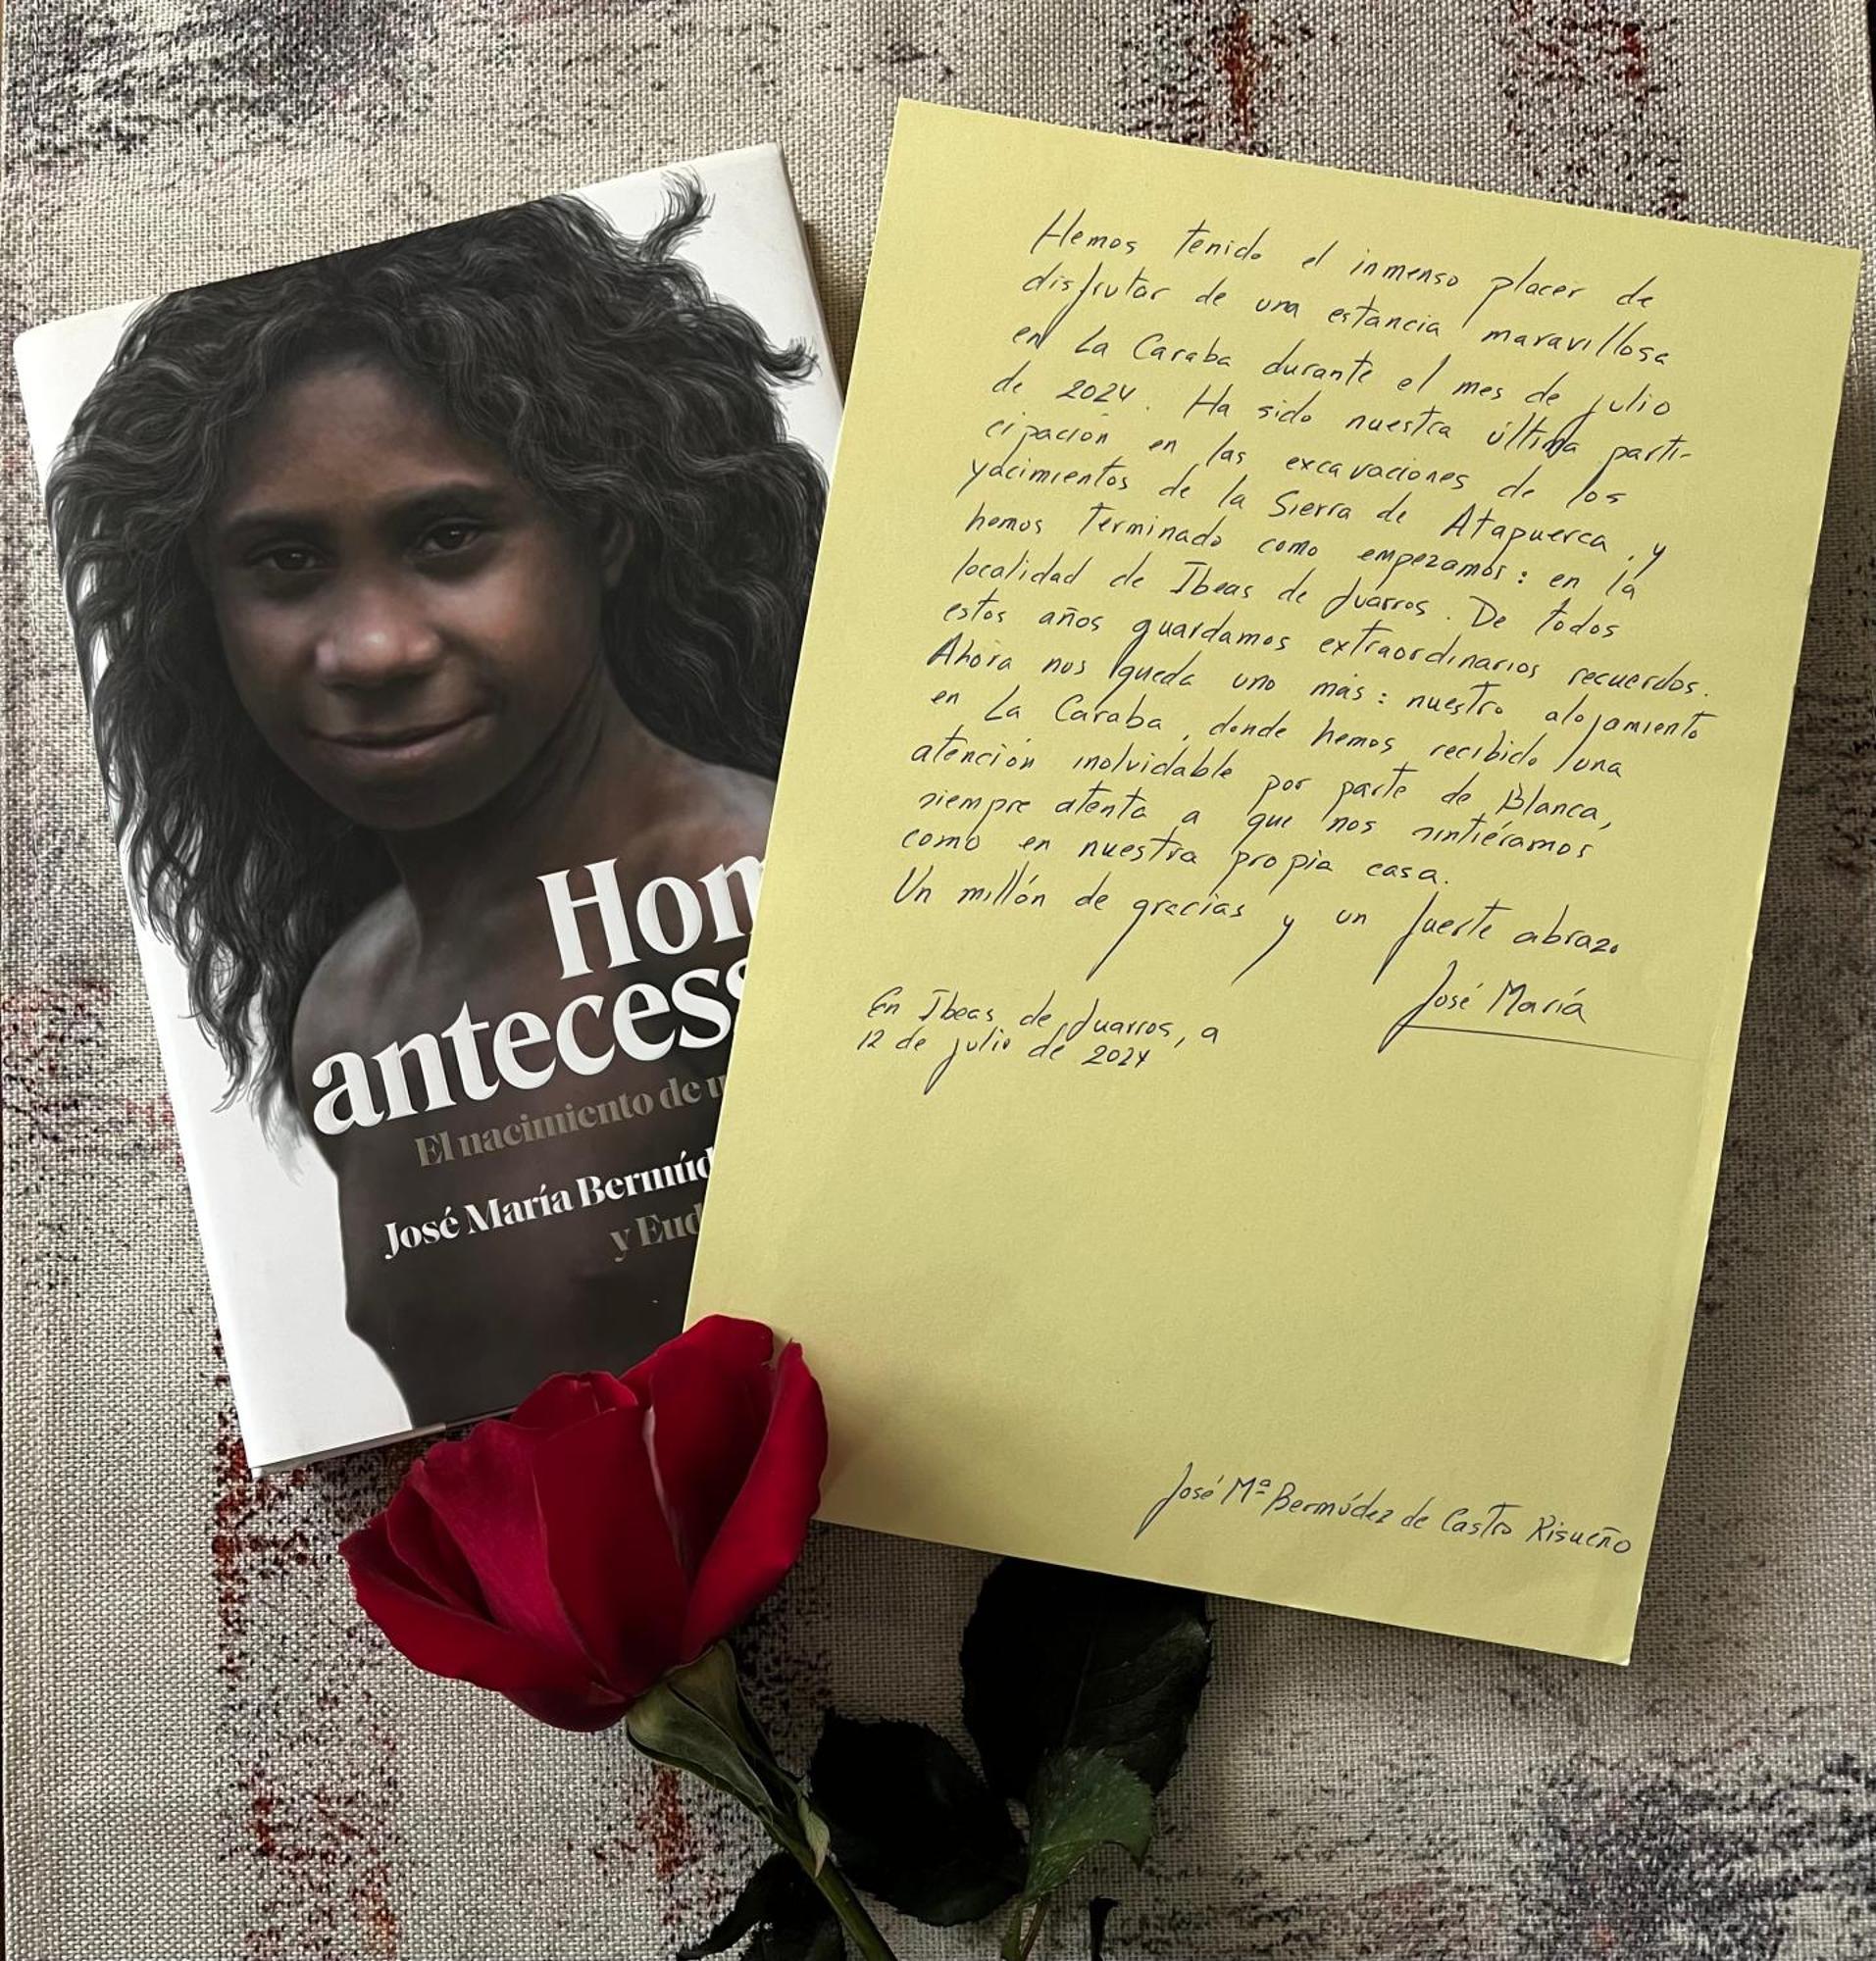 Hom
antecess
El nacimiento de u
José María Bermúd
y Eud
Hemos tenido el inmenso placer de
disfrutar de una estancia maravillosa
en La Caraba durante el mes de julio
de 2024. Ha sido nuestra última parti-
cipación en las excavaciones de los
yacimientos de la Sierra de Atapuerca, y
hemos terminado como empezamos: en la
localidad de Ibeas de Juarros. De todos
estos años guardamos extraordinarios recuerdos.
Ahora nos queda uno más: nuestro alojamiento
en La Caraba, donde hemos recibido una
atención inolvidable por parte de Blanca,
siempre atenta a que nos sintiéramos
como en nuestra propia casa.
Un millón de gracias y un fuerte abrazo
José María
En Ibeas de Juarros, a
12 de julio de 2024
José Mª Bermúdez de Castro Risueño